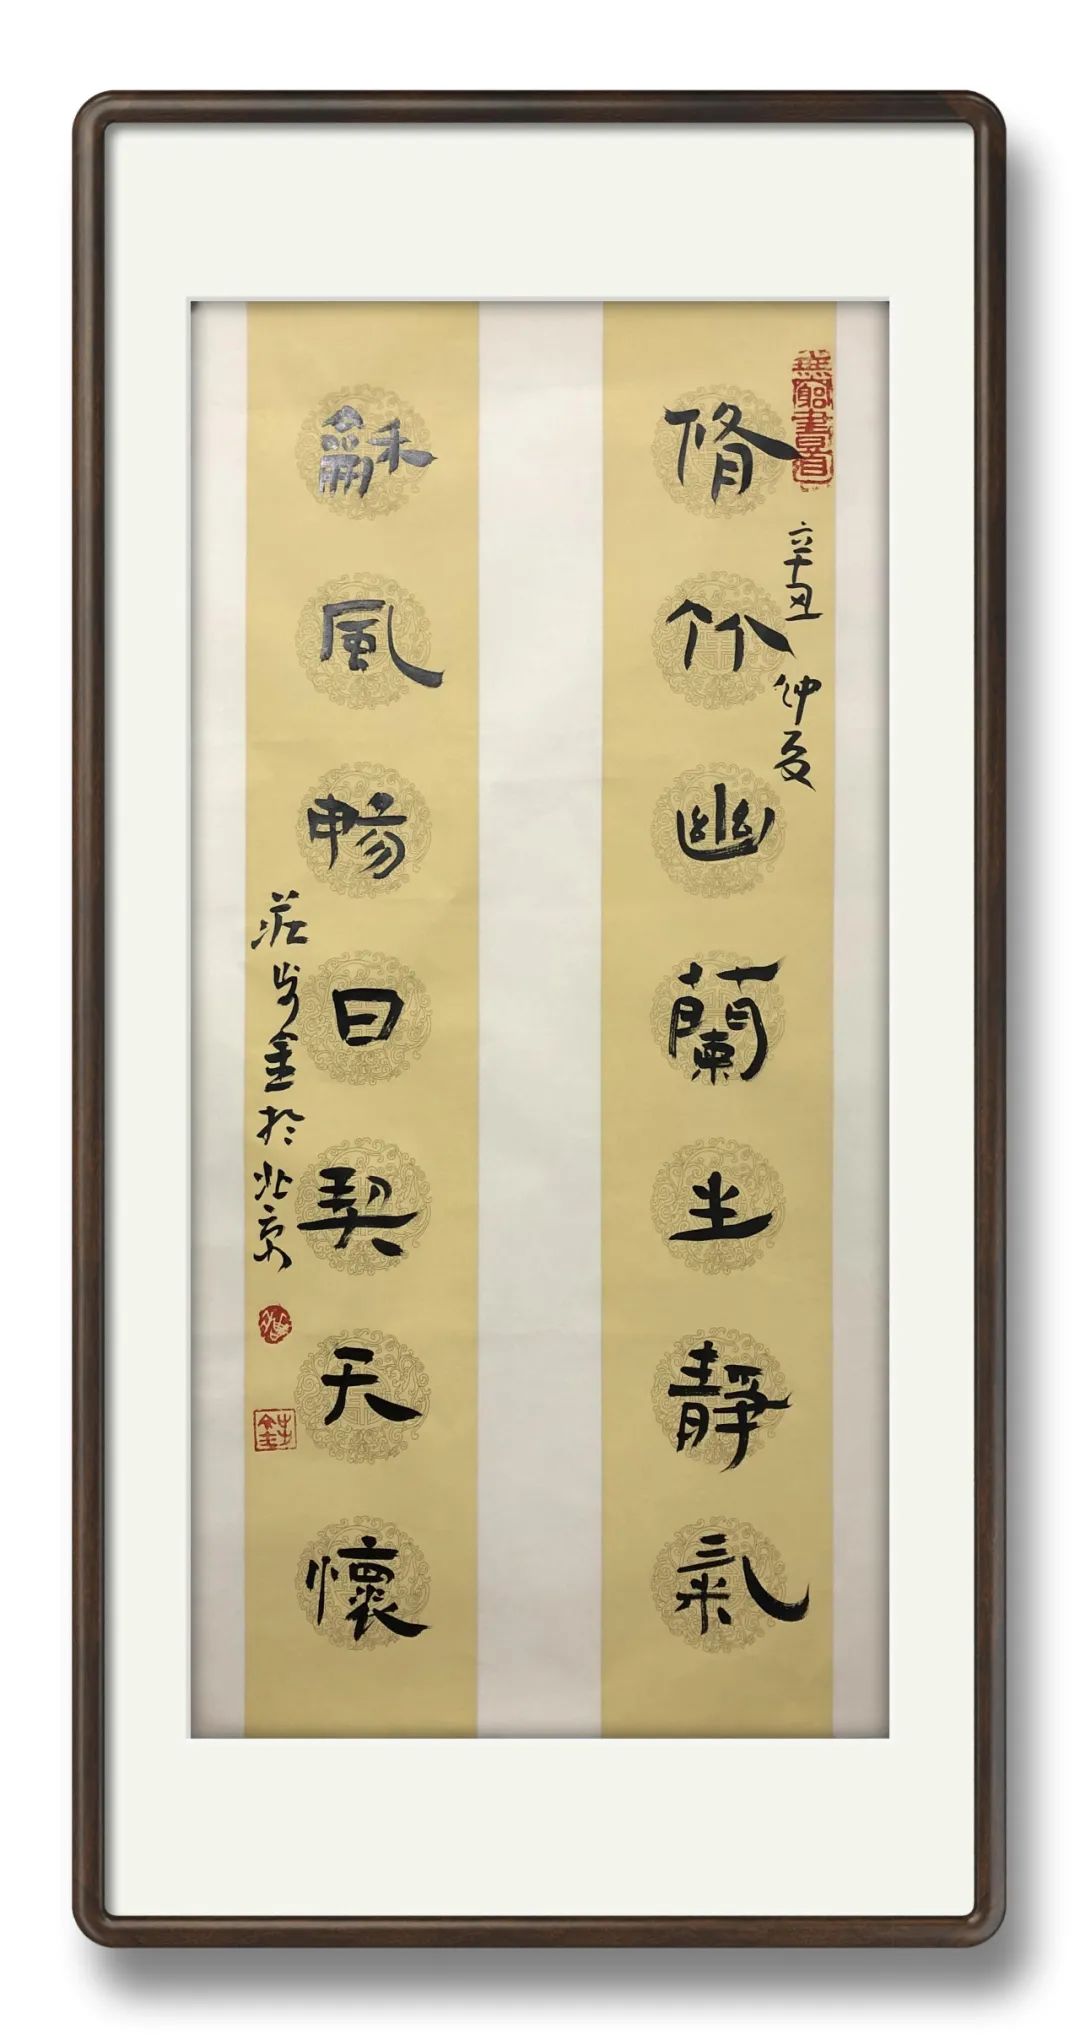 無窮書
脩竹幽蘭生靜氣
辛丑仲夏
龢風暢日契天懷
莊金於北京